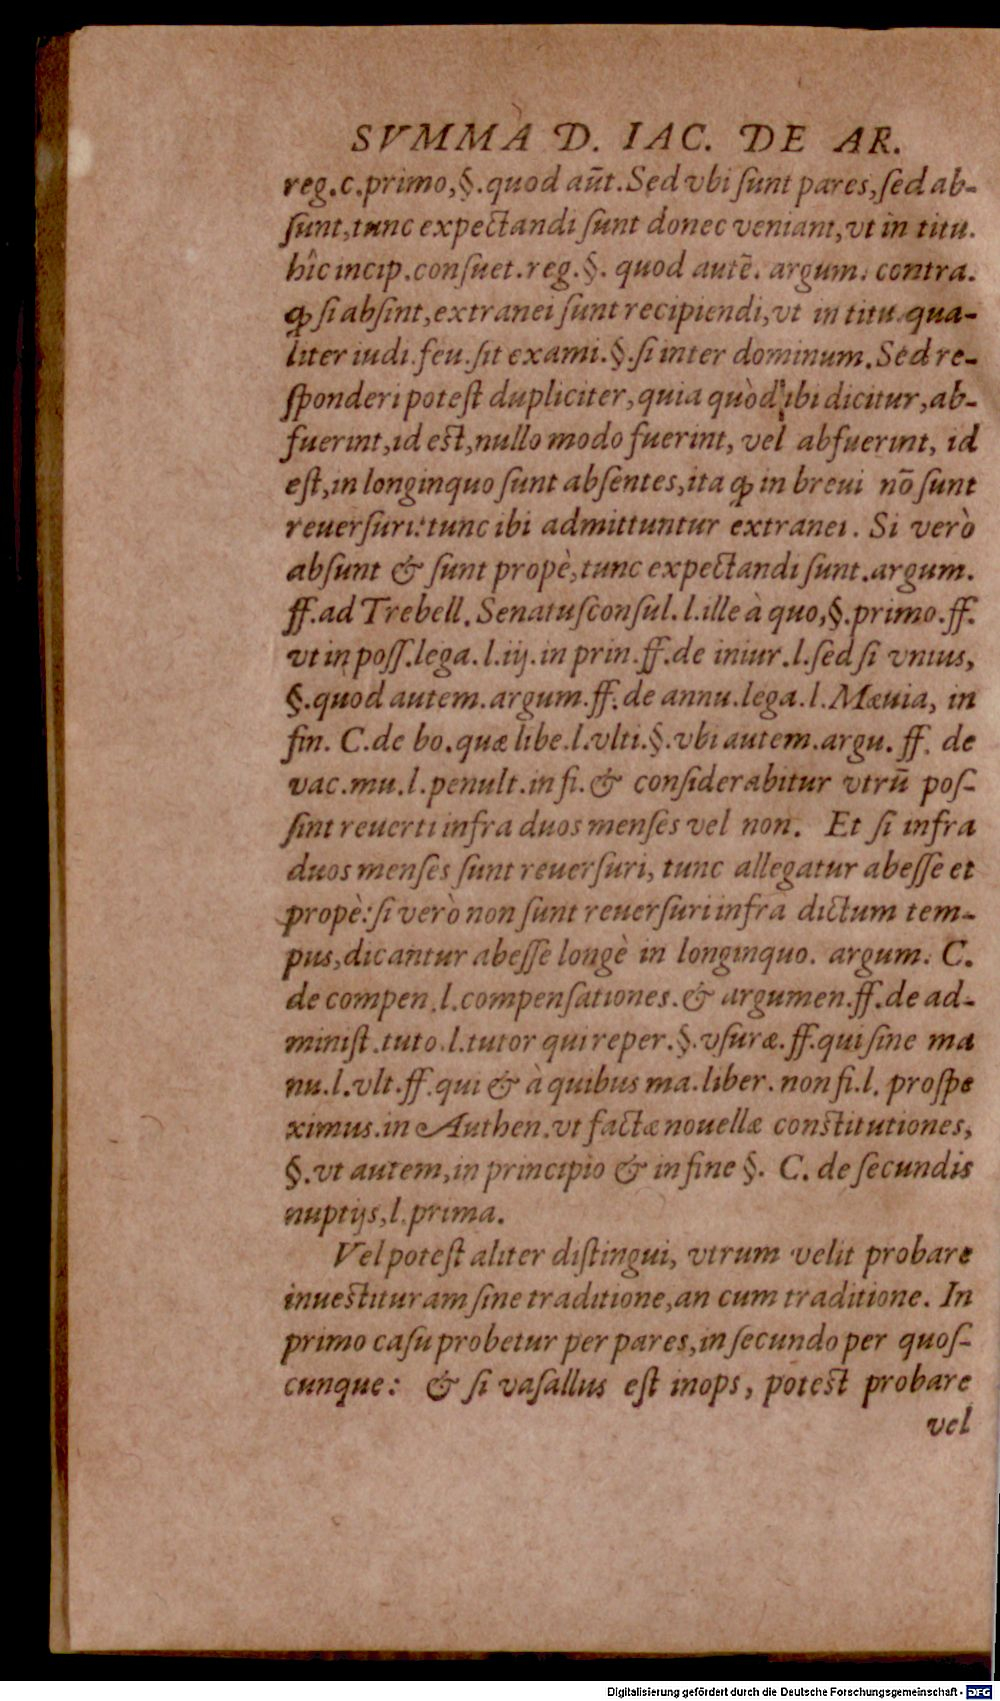 SVMMA D. IAC. DE AR.
reg.c.primo,§.quod aūt.Sed vbi sunt pares,sed ab-
sunt,tunc expectandi sunt donec veniant,vt in titu.
hîc incip.consuet.reg.§. quod autē. argum. contra.
ꝙ si absint,extranei sunt recipiendi,vt in titu.qua-
liter iudi.feu.sit exami.§.si inter dominum.Sed re-
sponderi potest dupliciter,quia quòd ibi dicitur,ab-
fuerint,id est,nullo modo fuerint, vel abfuerint, id
est,in longinquo sunt absentes,ita ꝙ in breui nō sunt
reuersuri:tunc ibi admittuntur extranei. Si verò
absunt & sunt propè,tunc expectandi sunt.argum.
ff.ad Trebell.Senatusconsul.l.ille à quo,§.primo.ff.
vt in poss.lega.l.iij.in prin.ff.de iniur.l.sed si vnius,
§.quod autem.argum.ff.de annu.lega.l.Mæuia, in
fin. C.de bo.quæ libe.l.vlti.§.vbi autem.argu. ff. de
vac.mu.l.penult.in fi.& considerabitur vtrū pos-
sint reuerti infra duos menses vel non. Et si infra
duos menses sunt reuersuri, tunc allegatur abesse et
propè:si verò non sunt reuersuri infrà dictum tem-
pus,dicantur abesse longè in longinquo. argum. C.
de compen.l.compensationes.& argumen.ff.de ad-
minist.tuto.l.tutor qui reper.§.vsuræ.ff.qui sine ma
nu.l.vlt.ff.qui & à quibus ma.liber.non fi.l. prospe
ximus.in Authen.vt factæ nouellæ constitutiones,
§.vt autem,in principio & in fine §. C. de secundis
nuptijs,l.prima.
Vel potest aliter distingui, vtrum velit probare
inuestituram sine traditione,an cum traditione. In
primo casu probetur per pares,in secundo per quos-
cunque: & si vasallus est inops, potest probare
vel
Digitalisierung gefördert durch die Deutsche Forschungsgemeinschaft - DFG